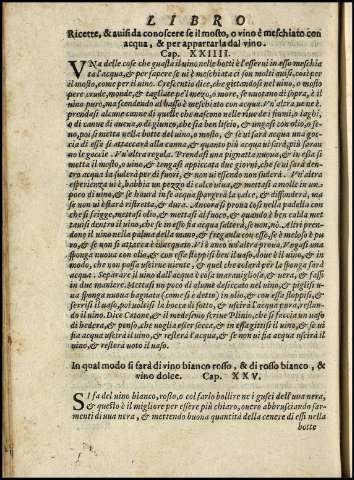 LIBRO
Ricette, & auisi da conoscere se il mosto, o vino è meschiato con
acqua, & per appartarla dal vino.
Cap. XXIIII.
VNa delle cose che guasta il uino nelle botti è l'esserui in esso meschia
ta l'acqua, & per sapere se ui è meschiata ci son molti auisi, così per
il mosto, come per il uino. Crescentio dice, che gittandosi nel uino, o mosto
pere crude, monde, & tagliate pel mezo, o more, se nuotano di sopra, è il
uino puro, ma scendendo al basso è meschiato con acqua. Vn'altra, ue ne è,
prendasi alcune canne di quelle che nascono nelle riue de i fiumi, o laghi,
o di canne di auena, o di giunco, che sia ben secco, & ungasi con olio, o se-
uo, poi si metta nella botte del uino, o mosto, & se ui sarà acqua una goc-
cia di essa si attaccarà alla canna, & quanto piu acqua sarà, più saran
no le goccie. Vn'altra regola. Prendasi una pignatta nuoua, & in essa si
metta il mosto, o uino, & tengasi appiccata due giorni, che se ui sarà den-
tro acqua la suderà per di fuori, & non ui essendo non suderà. Vn'altra
esperienza ui è, habbia un pezzo di calce uiua, & mettasi a molle in un
poco di uino, & se hauerà in se acqua spargerà la calce, & disfonderà, ma
se non ui è starà ristretta, & dura. Ancora si proua così nella padella con
che si frigge, mettasi olio, & mettasi al fuoco, & quando è ben calda met
tauisi dentro il uino, che se in esso sia acqua salterà, se non, nò. Altri pren-
dono il uino nella palma della mano, & fregando con esso, se è meloso è pu
ro, & se non si attacca è inacquato. Vi è anco un'altra proua, Vngasi una
sponga nuoua con olio, & con essa stoppisi ben il uaso, doue il uino, & in
modo, che non possa uscirne niente, & quel che colarà per la sponga sarà
acqua. Separare il uino dall'acqua è cosa marauigliosa, & uera, & fassi
in due maniere. Mettasi un poco di alume desiccato nel uino, & piglisi u-
na sponga nuoua bagnata (come si è detto) in olio, & con essa stoppisi, &
serrisi il uaso, poi uoltisi la bocca di sotto, & uscirà l'acqua pura, restan-
do il uino. Dice Catone, & il medesimo scriue Plinio, che si faccia un uaso
di hedera, & penso, che uoglia esser secca, & in essa gittisi il uino, & se ui
sia acqua uscirà il uino, & resterà l'acqua, & se non ui sia acqua uscirà il
uino, & resterà uoto il uaso.
In qual modo si farà di vino bianco rosso, & di rosso bianco, &
vino dolce. Cap. XXV.
SI fa del uino bianco, rosso, o col farlo bollire ne i gusci dell'uua nera,
& questo è il migliore per essere più chiaro, ouero abbrusciando sar-
menti di uua nera, & mettendo buona quantità della cenere di essi nella
botte